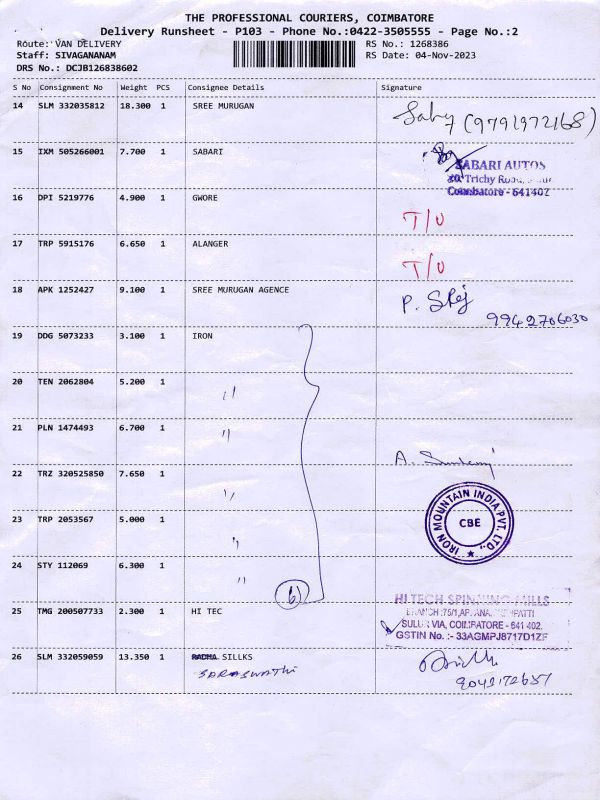 THE PROFESSIONAL COURIERS, COIMBATORE
Delivery Runsheet - P103 - Phone No.:0422-3505555 - Page No.:2
Route: VAN DELIVERY RS No.: 1268386
Staff: SIVAGANANAM RS Date: 04-Nov-2023
DRS No.: DCJB126838602
S No Consignment No Weight PCS Consignee Details Signature
14 SLM 332035812 18.300 1 SREE MURUGAN
(9791972168)
15 IXM 505266001 7.700 1 SABARI
SABARI AUTOS
Trichy
Coimbatore - 641402
16 DPI 5219776 4.900 1 GWORE T/U
17 TRP 5915176 6.650 1 ALANGER T/U
18 APK 1252427 9.100 1 SREE MURUGAN AGENCE P.
9942706030
19 DDG 5073233 3.100 1 IRON
20 TEN 2062804 5.200 1 "
21 PLN 1474493 6.700 1 "
22 TRZ 320525850 7.650 1 "
A.
23 TRP 2053567 5.000 1 "
IRON MOUNTAIN INDIA PVT. LTD.,
CBE
24 STY 112069 6.300 1 "
6)
25 TMG 200507733 2.300 1 HI TEC
HI TECH SPINNING MILLS
VIA, COIMBATORE - 641 402.
GSTIN No. :- 33AGMPJ8717D1ZF
26 SLM 332059059 13.350 1 RADHA SILLKS
SARASWATHI